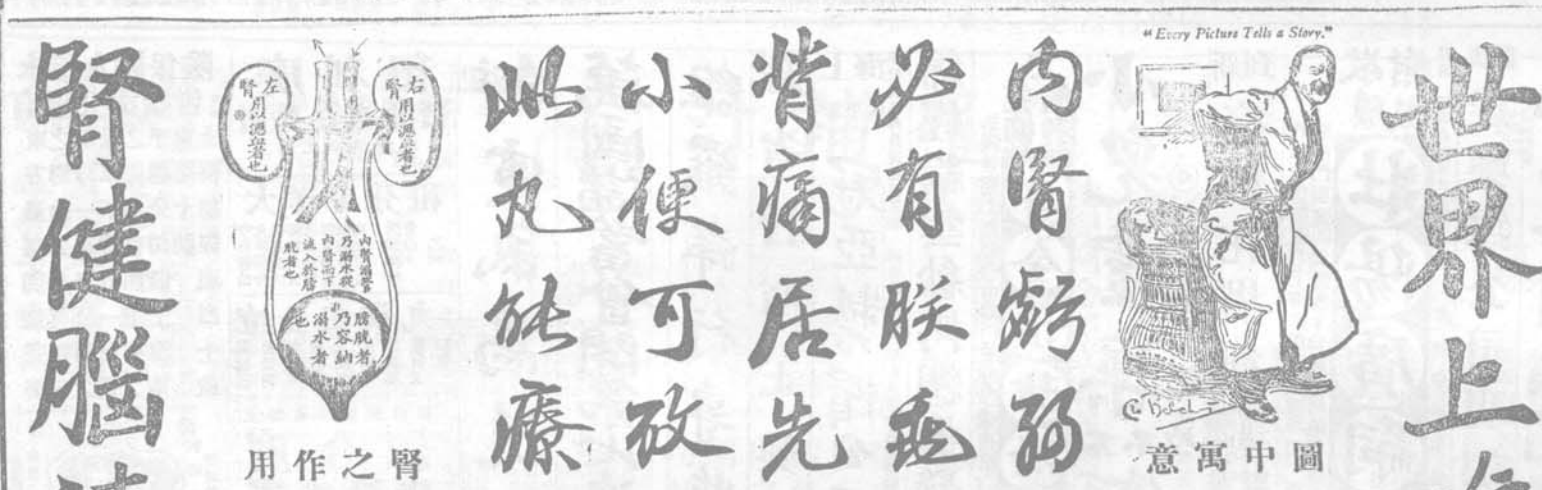 世界上
"Every Picture Tells a Story."
圖中寓意
內腎虧弱
必有朕兆
背痛居先
小便可攷
此丸能療
右腎用以濾血者也
左腎用以濾血者也
內腎溺管
乃溺水從
內腎而下
流入於膀
胱者也
膀胱者
乃容納
溺水者
也
腎之作用
腎健腦